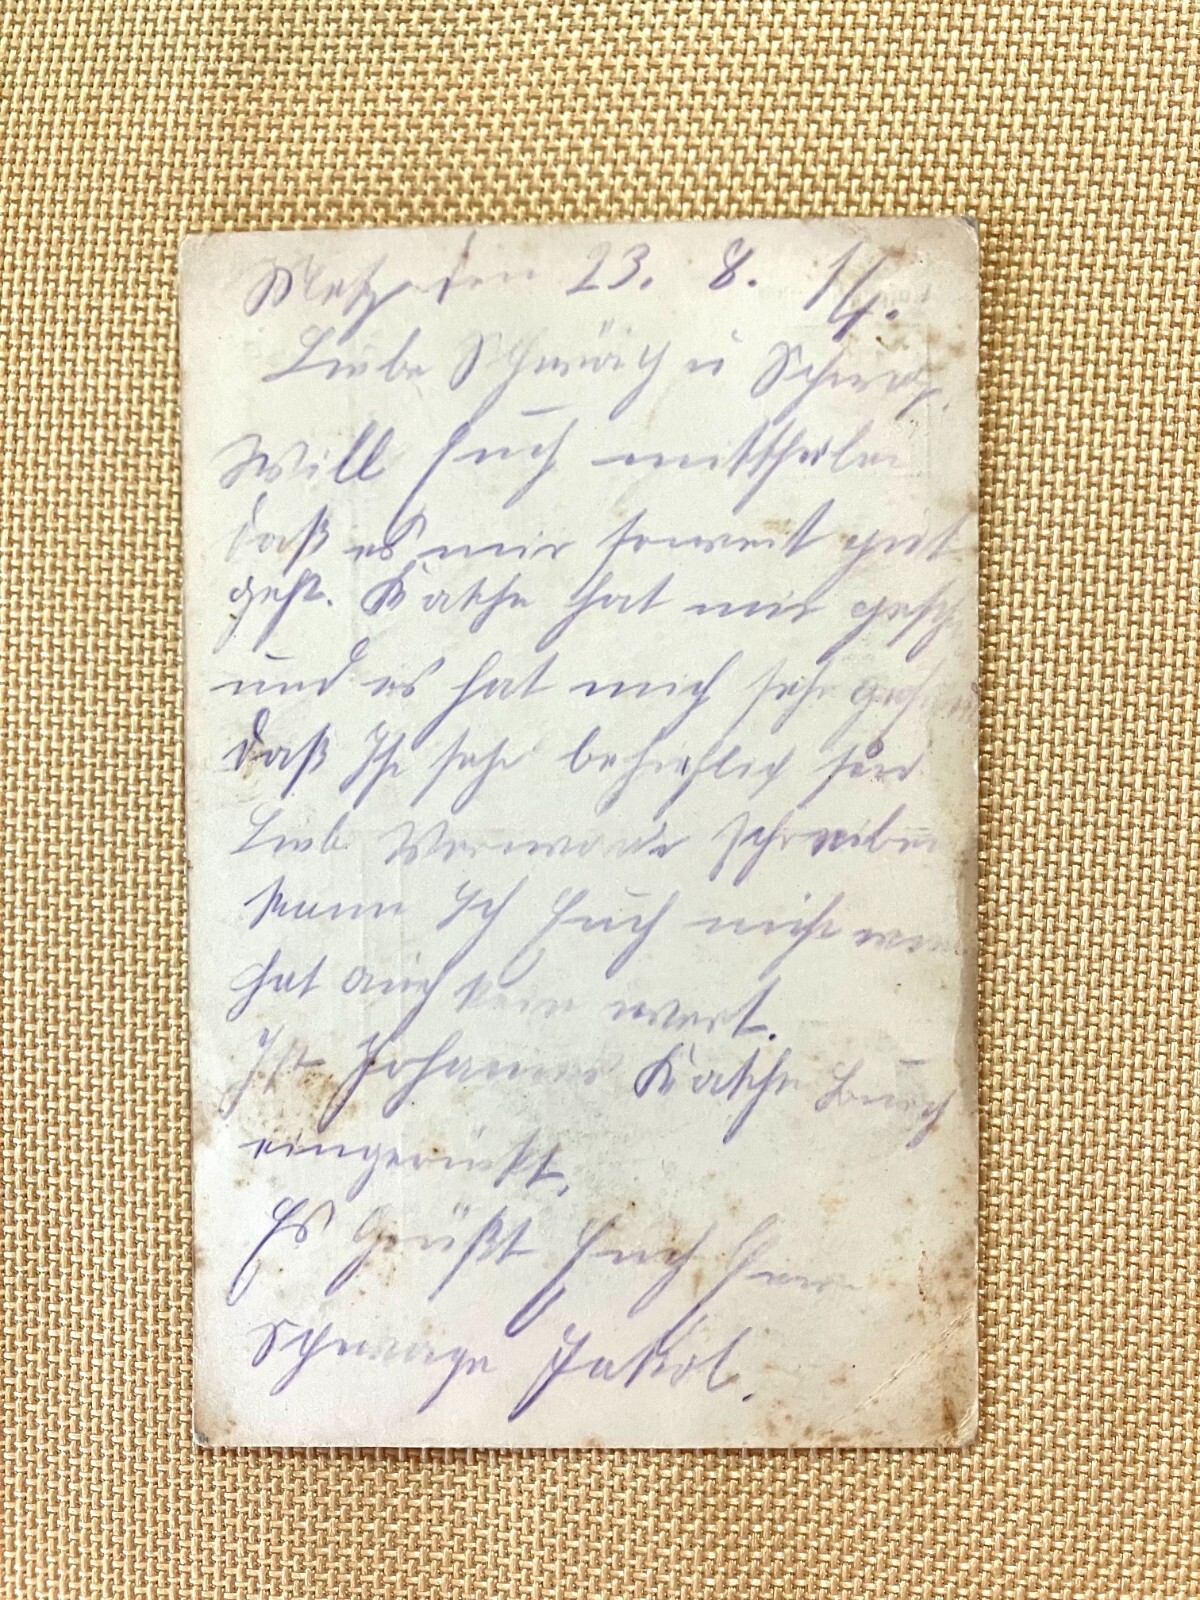 Metz den 23. 8. 14.
Liebe Schwäg u Schwag.
Will Euch mittheilen
daß es mir soweit gut
geht. Kathe hat mir gesch
und es hat mich sehr gefreu
daß Ihr sehr behieflich seid
Lieb Verwande schreiben
kann Ich Euch nicht
hat auch kein wert.
Ist Johannes Kathe Bauch
eingerückt.
Es Grüßt Euch Euer
Schwager Jakob.